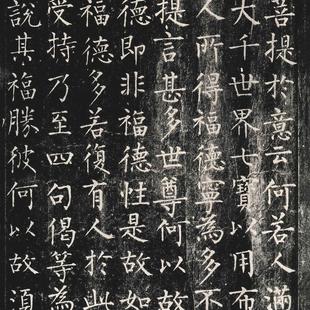 菩提於意云何若人滿
大千世界七寶以用布
人所得福德寧為多不
提言甚多世尊何以故
德即非福德性是故如
福德多若復有人於此
受持乃至四句偈等為
說其福勝彼何以故須